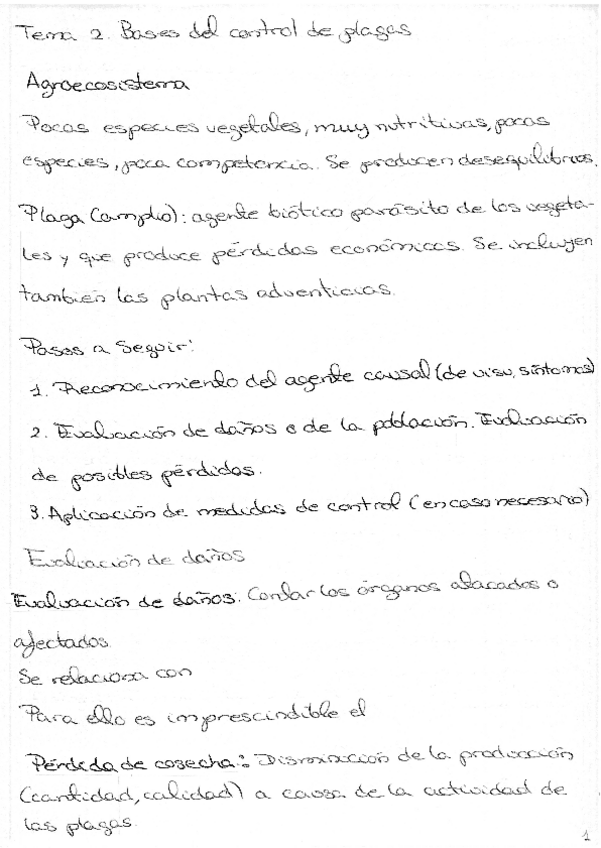 Tema 2. Bases del control de plagas
Agroecosistema
Pocas especies vegetales, muy nutritivas, pocas
especies, poca competencia. Se producen desequilibrios.
Plaga (amplio): agente biótico parásito de los vegeta-
les y que produce pérdidas económicas. Se incluyen
también las plantas adventicias.
Pasos a seguir:
1. Reconocimiento del agente causal (de visu, síntomas)
2. Evaluación de daños o de la población. Evaluación
de posibles pérdidas.
3. Aplicación de medidas de control (en caso necesario)
Evaluación de daños
Evaluación de daños: Contar los órganos atacados o
afectados.
Se relaciona con
Para ello es imprescindible el
Pérdida de cosecha: Disminución de la producción
(cantidad, calidad) a causa de la actividad de
las plagas.
1